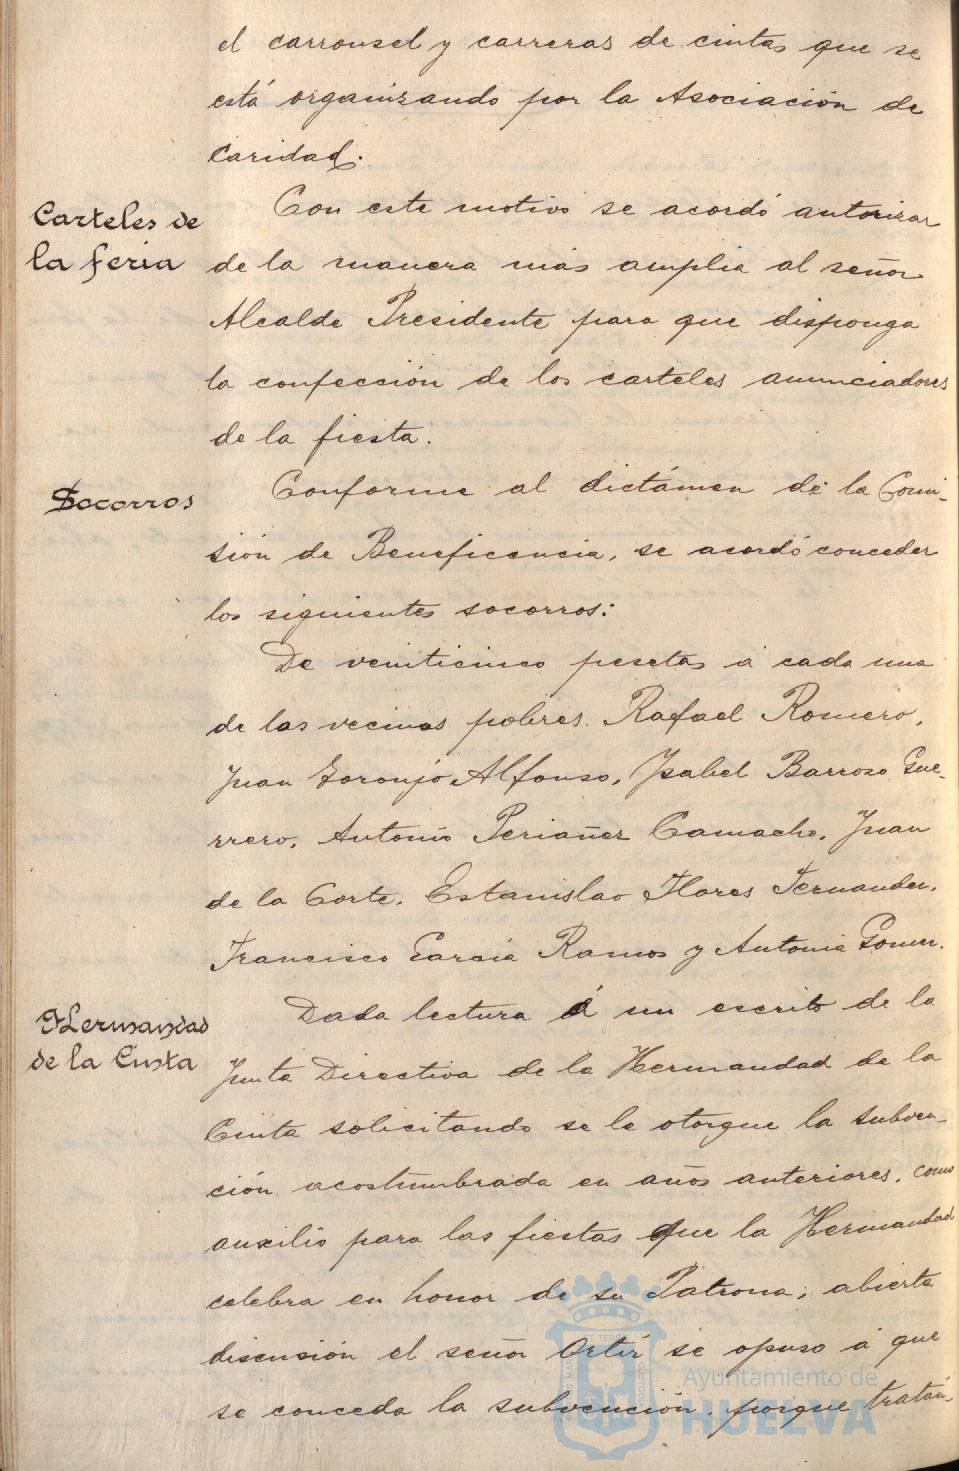 el carrousel y carreras de cintas que se
está organizando por la Asociación de
Caridad.
Carteles de
la feria
Con este motivo se acordó autorizar
de la manera más amplia al señor
Alcalde Presidente para que disponga
la confección de los carteles anunciadores
de la fiesta.
Socorros
Conforme al dictámen de la Comi-
sión de Beneficencia, se acordó conceder
los siguientes socorros:
De veinticinco pesetas á cada una
de las vecinas pobres. Rafael Romero,
Juan Toronjo Alfonso, Ysabel Barroso Gue-
rrero, Antonio Periañez Camacho, Juan
de la Corte, Estanislao Flores Fernandez,
Francisco García Ramos y Antonia Gomez.
Hermandad
de la Cinta
Dada lectura á un escrito de la
Junta Directiva de la Hermandad de la
Cinta solicitando se le otorgue la subven-
ción acostumbrada en años anteriores, como
auxilio para las fiestas que la Hermandad
celebra en honor de su Patrona; abierta
discusión el señor Ortíz se opuso á que
se conceda la subvención, porque tratán-
Ayuntamiento de
HUELVA